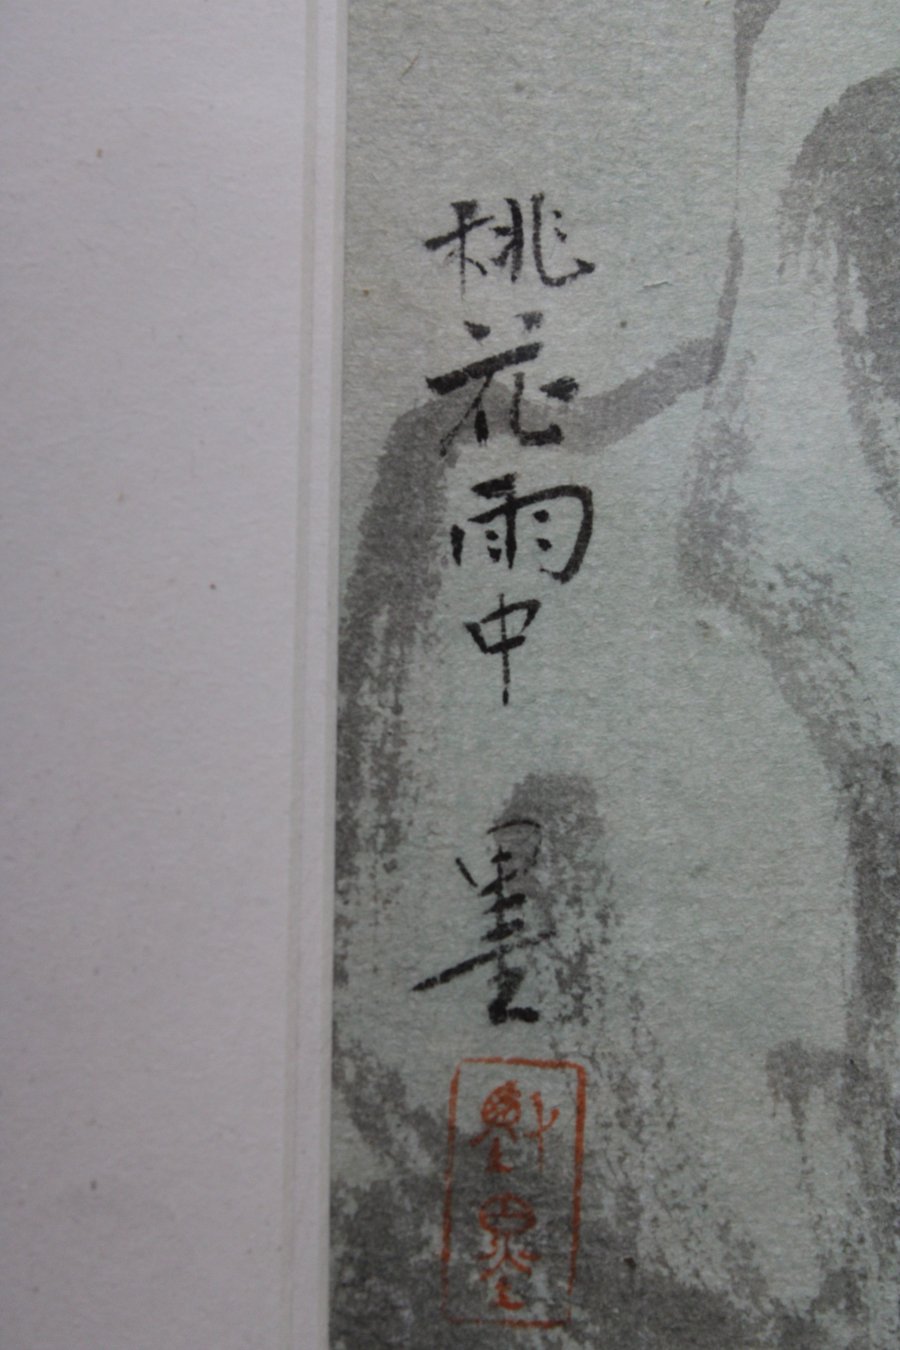 桃花雨中 墨